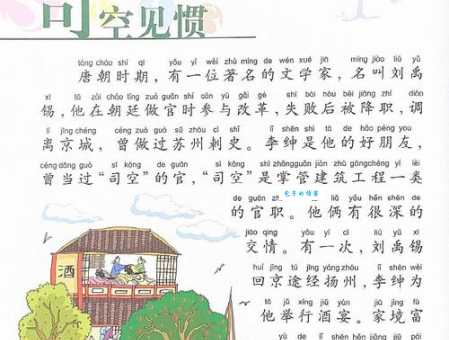 司空见惯
táng cháo shí qī yǒu yí wèi zhù míng de wén xué jiā míng jiào liú yǔ
唐朝时期，有一位著名的文学家，名叫刘禹
xī tā zài cháo tíng zuò guān shí cān yù gǎi gé shī bài hòu bèi jiàng zhí diào
锡，他在朝廷做官时参与改革，失败后被降职，调
lí jīng chéng céng zuò guò sū zhōu cì shǐ lǐ shēn shì tā de hǎo péng you
离京城，曾做过苏州刺史。李绅是他的好朋友，
céng dāng guò sī kōng de guān sī kōng shì zhǎng guǎn jiàn zhù gōng chéng yí lèi
曾当过“司空”的官，“司空”是掌管建筑工程一类
de guān zhí liǎ yǒu hěn shēn de
的官职。他俩有很深的
jiāo qíng yǒu yí cì liú yǔ xī
交情。有一次，刘禹锡
huí jīng tú jīng yáng zhōu lǐ shēn wèi
回京途经扬州，李绅为
tā jǔ xíng jiǔ yàn jiā jìng fù
他举行酒宴。家境富
酒